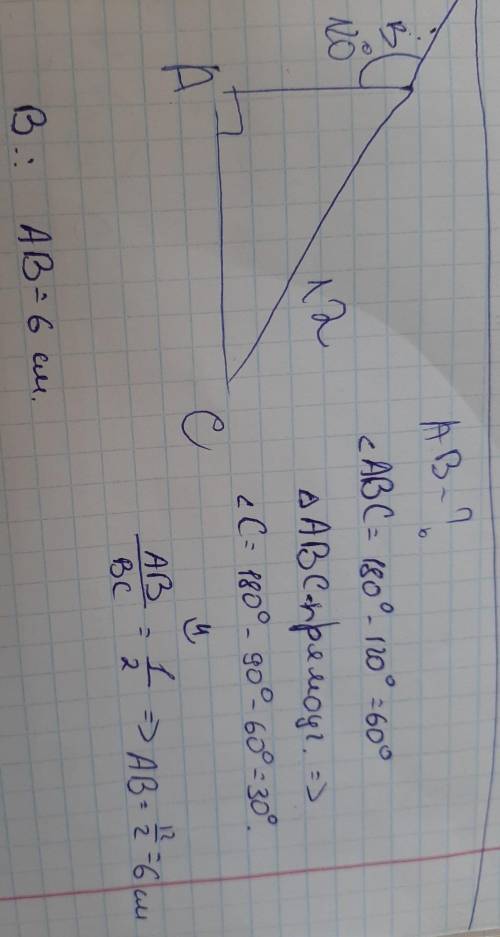 B
120°
A
12
C
AB - ?
<ABC = 180° - 120° = 60°
△ABC - прямоуг. =>
<C = 180° - 90° - 60° = 30°.
AB/BC = 1/2 => AB = 12/2 = 6 см
В: AB = 6 см.